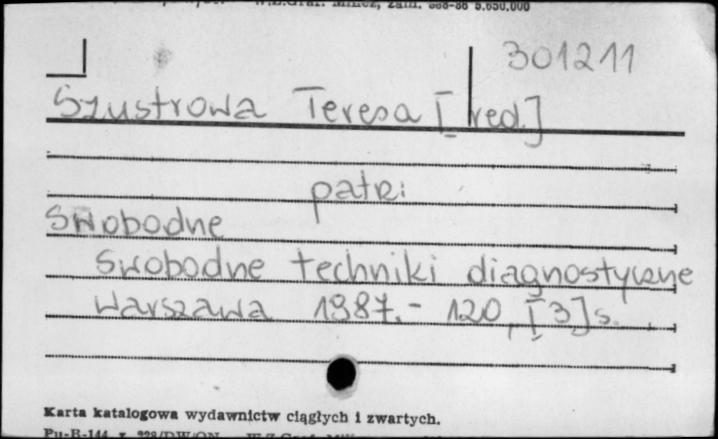 W.Z.Graf. Milicz, zam. 888-86 5.650.000
301211
Szustrowa Teresa [red.]
patrz:
Swobodne
Swobodne techniki diagnostyczne
Warszawa 1987.- 120, [3] s.
Karta katalogowa wydawnictw ciągłych i zwartych.
Pu-B-144